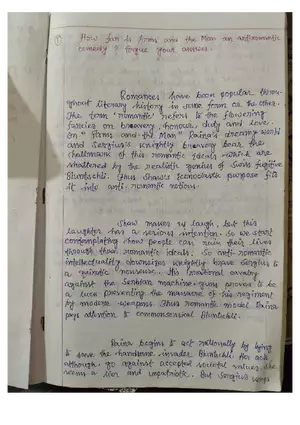 How far is Arms and the Man an antiromantic
comedy? Argue your answer.
Romances have been popular throu-
ghout literary history in some form or the other.
The term 'romantic' refers to the flowering
fancies on bravery, honour, duty and love.
On "Arms and the Man" Raina's dreamy world
and Sergius's knightly bravery bear the
challmark of this romantic ideals which are
shattered by the realistic genius of Swiss fugitive
Bluntschli. Thus Shaw's iconoclastic purpose fits
it into anti-romantic notions.
Shaw makes us laugh, but this
laughter has a serious intention. So we start
contemplating how people can ruin their lives
through these romantic ideals. So anti-romantic
intellectuality downsizes knightly brave Sergius to
a quixotic nuisance. His irrational cavalry
against the Serbian machine-guns proves to be
a luck preventing the massacre of his regiment
by modern weapons. Thus romantic model Raina
pays attention to commonsensical Bluntschli.
Raina begins to act rationally by lying
to save the handsome invader Bluntschli. Her act
although go against accepted societal values, she
seems a liar and unpatriotic. But Sergius's